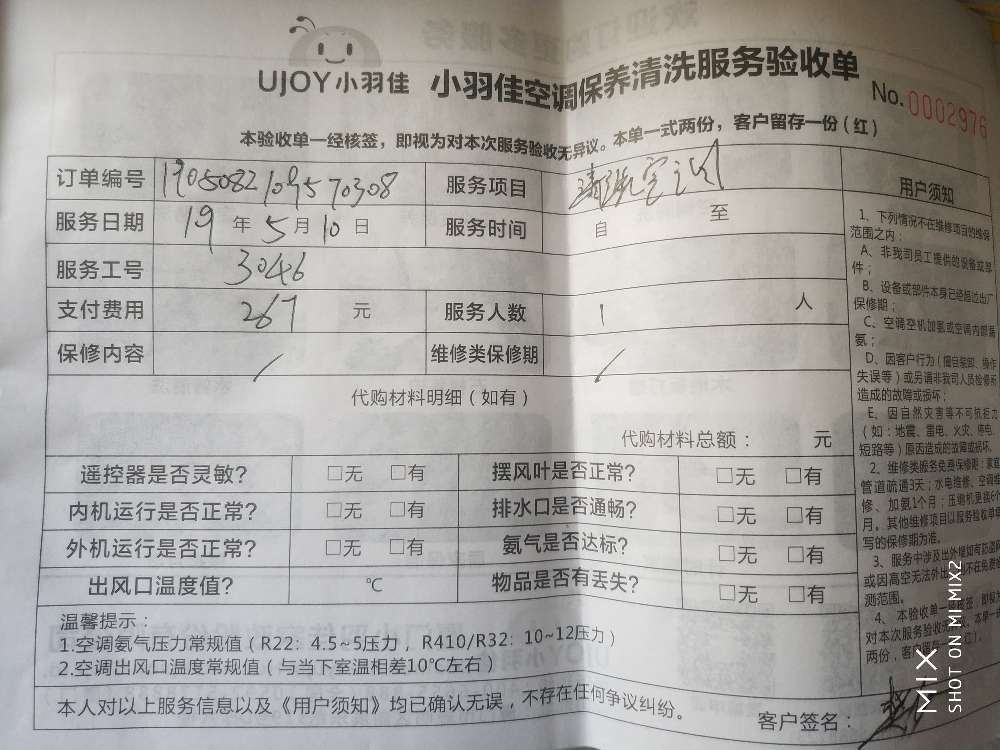 UJOY小羽佳 小羽佳空调保养清洗服务验收单
No.0002976
本验收单一经核签，即视为对本次服务验收无异议。本单一式两份，客户留存一份（红）
订单编号 服务项目 清洗空调
服务日期 19 年 5 月 10 日 服务时间 自 至
服务工号 3046
支付费用 267 元 服务人数 1 人
保修内容 / 维修类保修期 /
代购材料明细（如有）
代购材料总额： 元
遥控器是否灵敏？ □无 □有 摆风叶是否正常？ □无 □有
内机运行是否正常？ □无 □有 排水口是否通畅？ □无 □有
外机运行是否正常？ □无 □有 氨气是否达标？ □无 □有
出风口温度值？ ℃ 物品是否有丢失？ □无 □有
温馨提示：
1.空调氨气压力常规值（R22：4.5~5压力，R410/R32：10~12压力）
2.空调出风口温度常规值（与当下室温相差10℃左右）
本人对以上服务信息以及《用户须知》均已确认无误，不存在任何争议纠纷。
客户签名：
用户须知
1、下列情况不在维修项目的维保
范围之内：
A、非我司员工提供的设备或部
件；
B、设备或部件本身已经超过出厂
保修期；
C、空调空机加氨或空调内部漏
氨；
D、因客户行为（擅自装卸、操作
失误等）或另请非我司人员检修而
造成的故障或损坏；
E、因自然灾害等不可抗拒力
（如：地震、雷电、火灾、停电、
短路等）原因造成的故障或损坏。
2、维修类服务免费保修期：家庭
管道疏通3天；水电维修、空调维
修、加氨1个月；压缩机更换6个
月。其他维修项目以服务验收单填
写的保修期为准。
3、服务中涉及出外墙如有防盗网
或因高空无法外出 不在免费检
测范围。
4、本验收单一经核签，即视为
对本次服务验收 本单一
两份，客户留存
MIX
SHOT ON MI MIX2